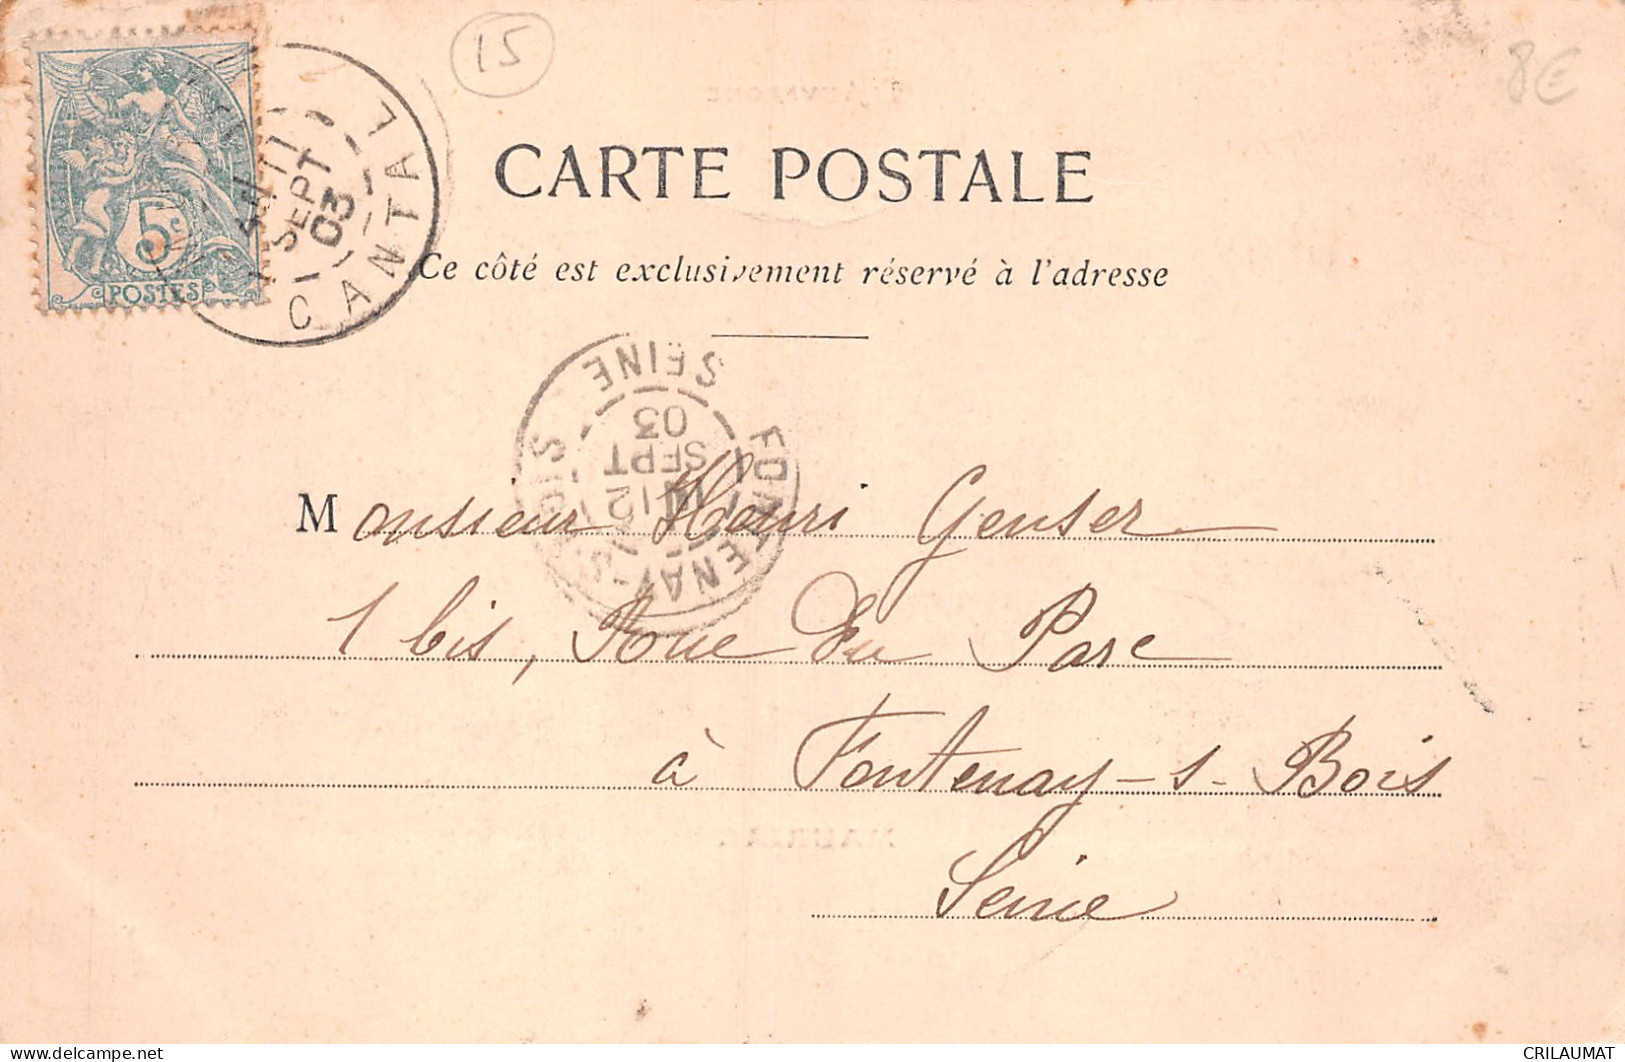 15
8€
CARTE POSTALE
Ce côté est exclusivement réservé à l'adresse
5c
POSTES
11
SEPT
03
CANTAL
SEINE
03
SEPT
12
FONTENAY-S-BOIS
Monsieur Henri Genser
1 bis, Rue du Parc
à Fontenay-s-Bois
Seine
delcampe.net
CRILAUMAT